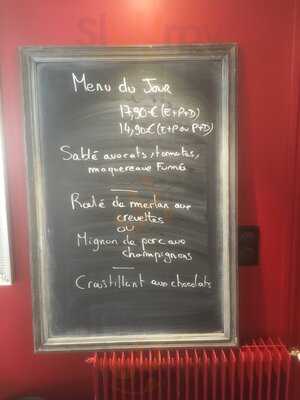 Menu du Jour
17,90€ (E+P+D)
14,90€ (E+P ou P+D)
Sablé avocats, tomates,
maquereaux Fumés
de merlan aux
crevettes
ou
Mignon de porc aux
champignons
Croustillant aux chocolats